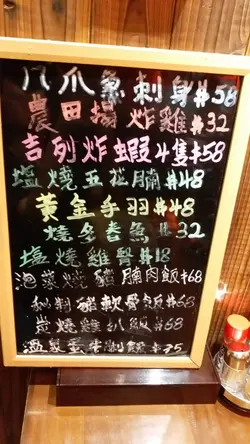 八爪魚刺身#58
農田場炸雞#32
吉列炸蝦4隻#58
塩燒五花腩#48
黃金手羽#48
燒多春魚#32
塩燒雞腎#18
泡菜燒豬腩肉飯#68
秘制豬軟骨飯#68
炭燒雞扒飯#68